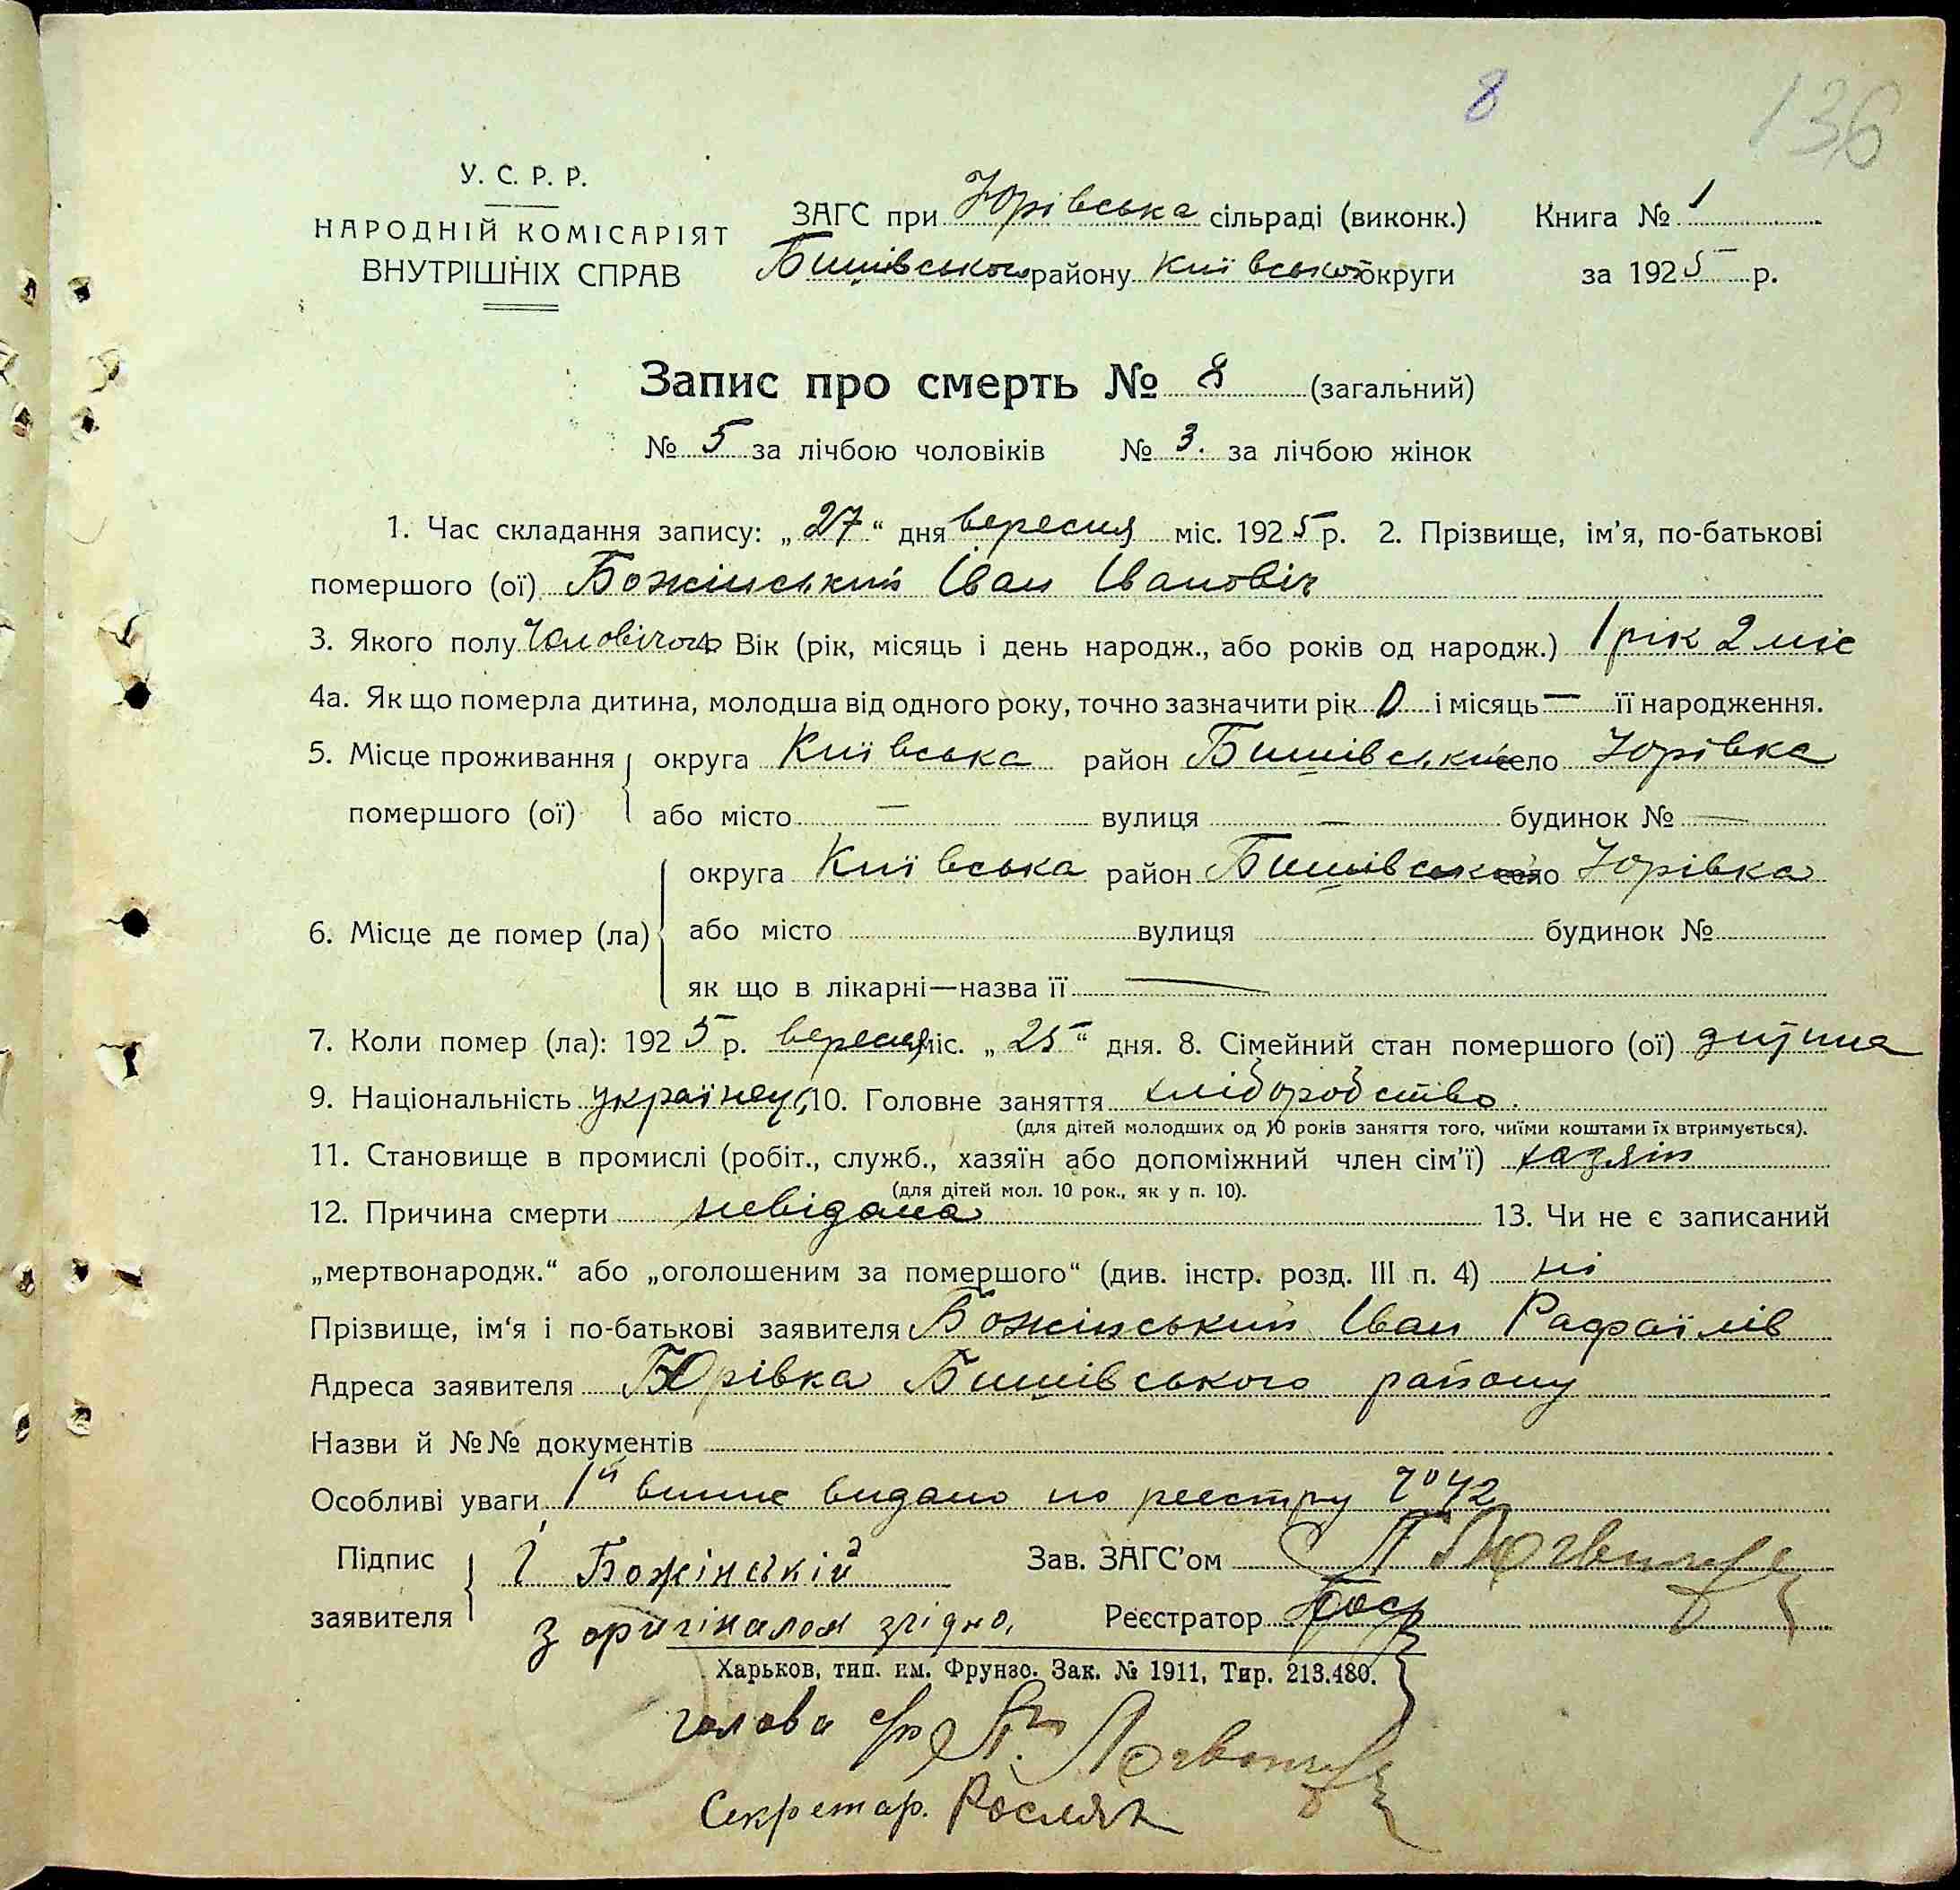 8
136
У. С. Р. Р.
НАРОДНІЙ КОМІСАРІЯТ
ВНУТРІШНІХ СПРАВ
ЗАГС при Юрівська сільраді (виконк.) Книга № 1
Бишівського району Київської округи за 1925 р.
Запис про смерть № 8 (загальний)
№ 5 за лічбою чоловіків № 3. за лічбою жінок
1. Час складання запису: „27“ дня вересня міс. 1925 р. 2. Прізвище, ім'я, по-батькові
помершого (ої) Божінський Іван Івановіч
3. Якого полу Чоловічого Вік (рік, місяць і день народж., або років од народж.) 1 рік 2 міс
4а. Як що померла дитина, молодша від одного року, точно зазначити рік 0 і місяць — її народження.
5. Місце проживання помершого (ої) округа Київська район Бишівський село Юрівка
або місто — вулиця — будинок № —
6. Місце де помер (ла) округа Київська район Бишівський село Юрівка
або місто вулиця будинок №
як що в лікарні—назва її —
7. Коли помер (ла): 1925 р. вересня міс. „25“ дня. 8. Сімейний стан помершого (ої) дитина
9. Національність українец 10. Головне заняття хліборобство.
(для дітей молодших од 10 років заняття того, чиїми коштами їх втримується).
11. Становище в промислі (робіт., служб., хазяїн або допоміжний член сім'ї) хазяін
(для дітей мол. 10 рок., як у п. 10).
12. Причина смерти невідома 13. Чи не є записаний
„мертвонародж.“ або „оголошеним за помершого“ (див. інстр. розд. III п. 4) ні
Прізвище, ім'я і по-батькові заявителя Божінський Іван Рафаїлів
Адреса заявителя Юрівка Бишівського району
Назви й №№ документів
Особливі уваги 1й випис видано по реестру № 42
Підпис заявителя І Божінській Зав. ЗАГС'ом П Логвинец
з оригіналом згідно, Реєстратор
Харьков, тип. им. Фрунзе. Зак. № 1911, Тир. 213.480.
голова с/р П. Логвинец
Секретар. Росляк